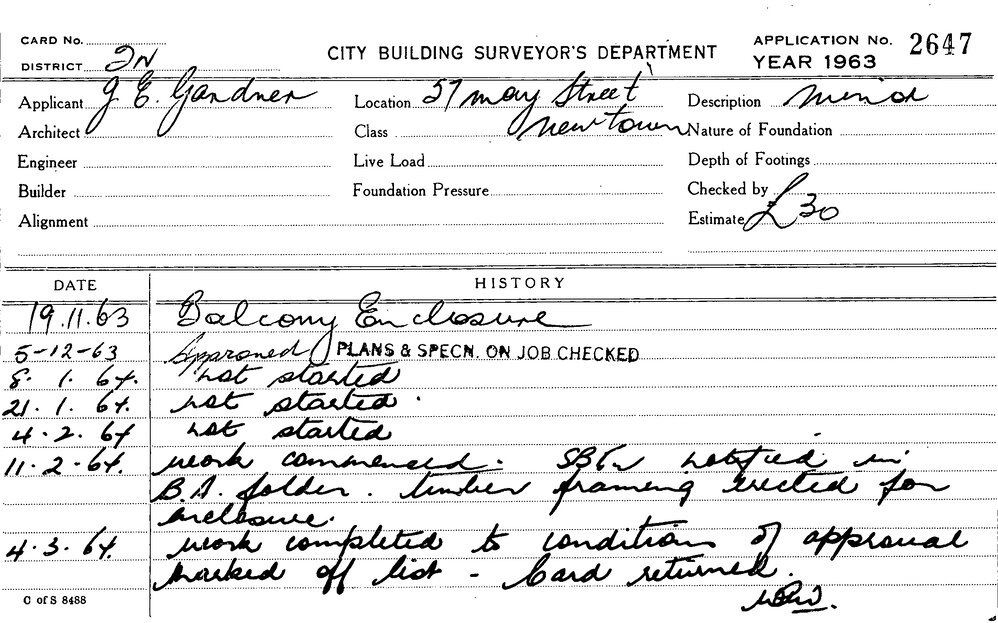 CARD No.
DISTRICT 2N
CITY BUILDING SURVEYOR'S DEPARTMENT
APPLICATION No. 2647
YEAR 1963
Applicant J. E. Gardner
Location 57 May Street
Description Minor
Architect
Class Newtown
Nature of Foundation
Engineer
Live Load
Depth of Footings
Builder
Foundation Pressure
Checked by
Alignment
Estimate £30
DATE
HISTORY
19.11.63 Balcony Enclosure
5-12-63 Approved PLANS & SPECN. ON JOB CHECKED
8. 1. 64. not started
21. 1. 64. not started.
4. 2. 64 not started
11-2-64. work commenced. notified in
B.A. folder. timber framing erected for
enclosure.
4.3.64. work completed to conditions of approval
marked off list - Card returned.
C of S 8488